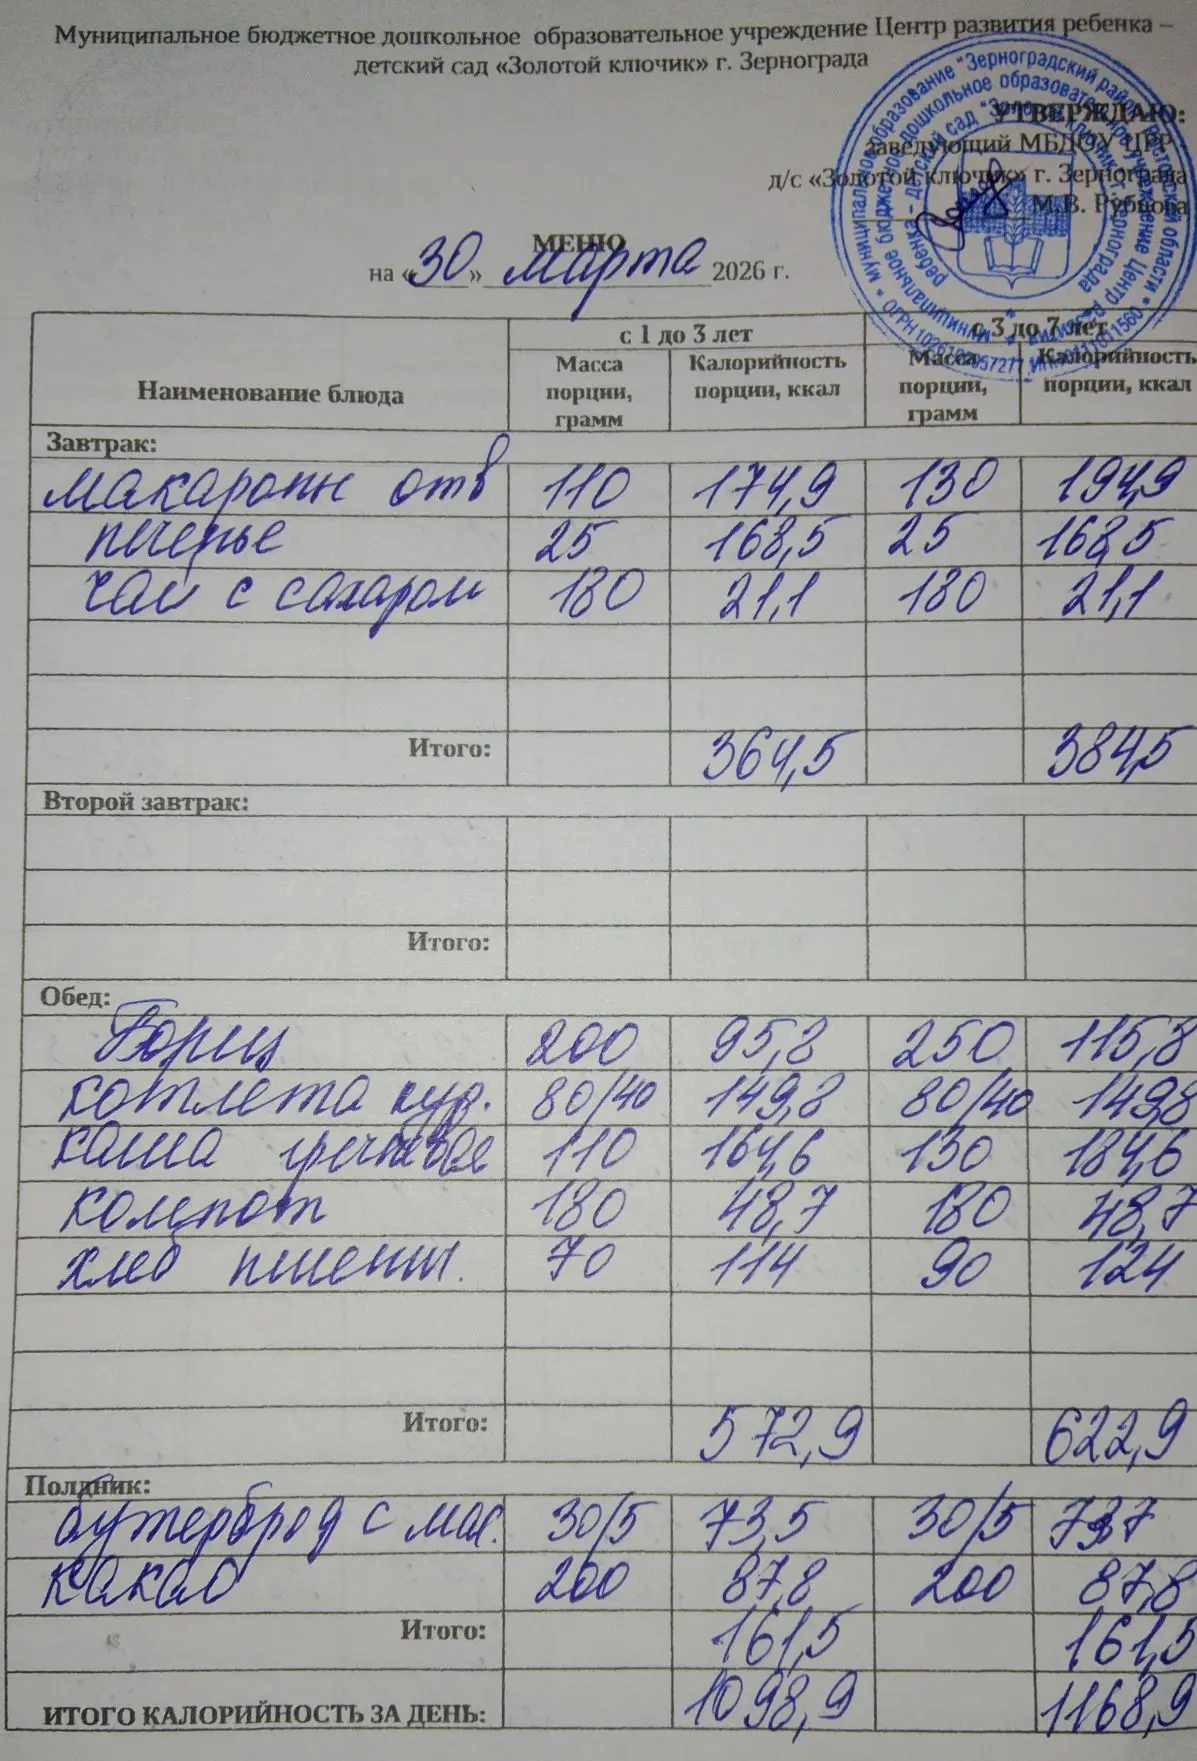 Муниципальное бюджетное дошкольное образовательное учреждение Центр развития ребенка –
детский сад «Золотой ключик» г. Зернограда
УТВЕРЖДАЮ:
заведующий МБДОУ ЦРР
д/с «Золотой ключик» г. Зернограда
М.В. Рубцова
МЕНЮ
на «30» марта 2026 г.
Наименование блюда с 1 до 3 лет с 3 до 7 лет
Масса порции, грамм Калорийность порции, ккал Масса порции, грамм Калорийность порции, ккал
Завтрак:
макароны отв 110 174,9 130 194,9
печенье 25 168,5 25 168,5
чай с сахаром 180 21,1 180 21,1
Итого: 364,5 384,5
Второй завтрак:
Итого:
Обед:
Борщ 200 95,8 250 115,8
котлета кур. 80/40 149,8 80/40 149,8
каша гречневая 110 164,6 130 184,6
компот 180 48,7 180 48,7
хлеб пшенич. 70 114 90 124
Итого: 572,9 622,9
Полдник:
бутерброд с мас. 30/5 73,5 30/5 73,7
какао 200 87,8 200 87,8
Итого: 161,5 161,5
ИТОГО КАЛОРИЙНОСТЬ ЗА ДЕНЬ: 1098,9 1168,9